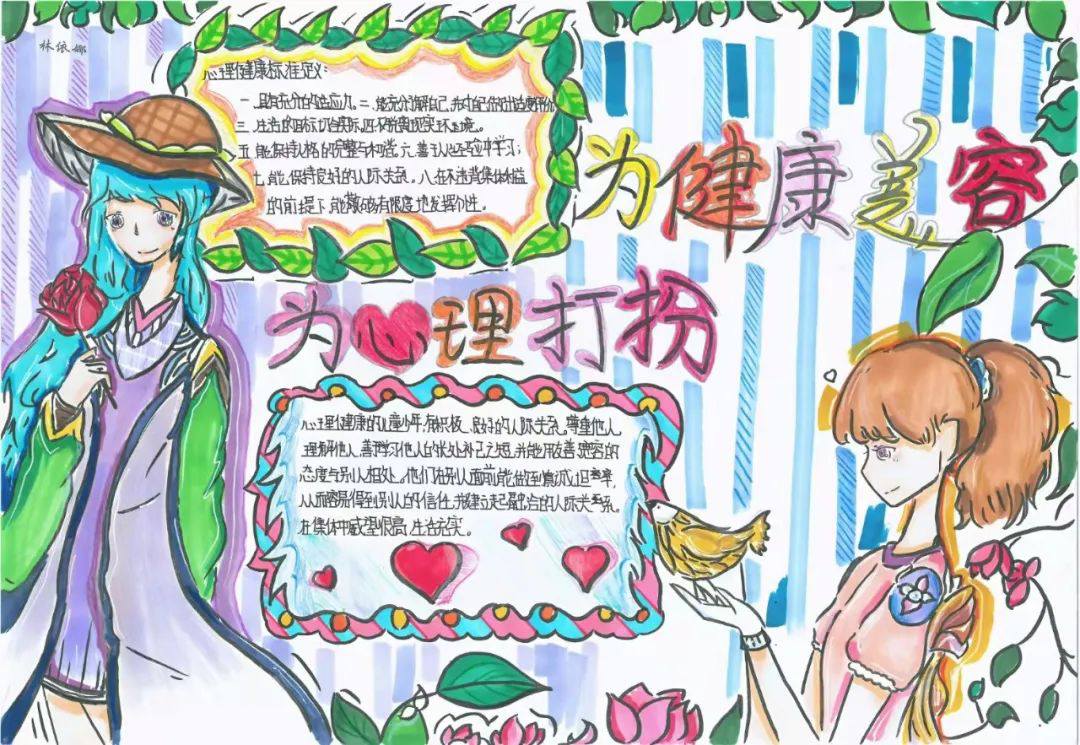 林依娜
心理健康标准定义:
一、具有充分的适应力。二、能充分了解自己,并对自己的能力做出适度的评价
三、生活的目标切合实际。四、不脱离现实环境。
五、能保持人格的完整与和谐。六、善于从经验中学习;
七、能保持良好的人际关系。八、在不违背集体利益
的前提下,能够有限度地发挥个性。
为健康美容
为心理打拐
心理健康的儿童少年,有积极、良好的人际关系。尊重他人,
理解他人,善于学习他人的长处补己之短,并能用友善、宽容的
态度与别人相处。他们在别人面前能做到真诚坦率,
从而容易得到别人的信任,并建立起融洽的人际关系。
在集体中威望很高,生活充实。